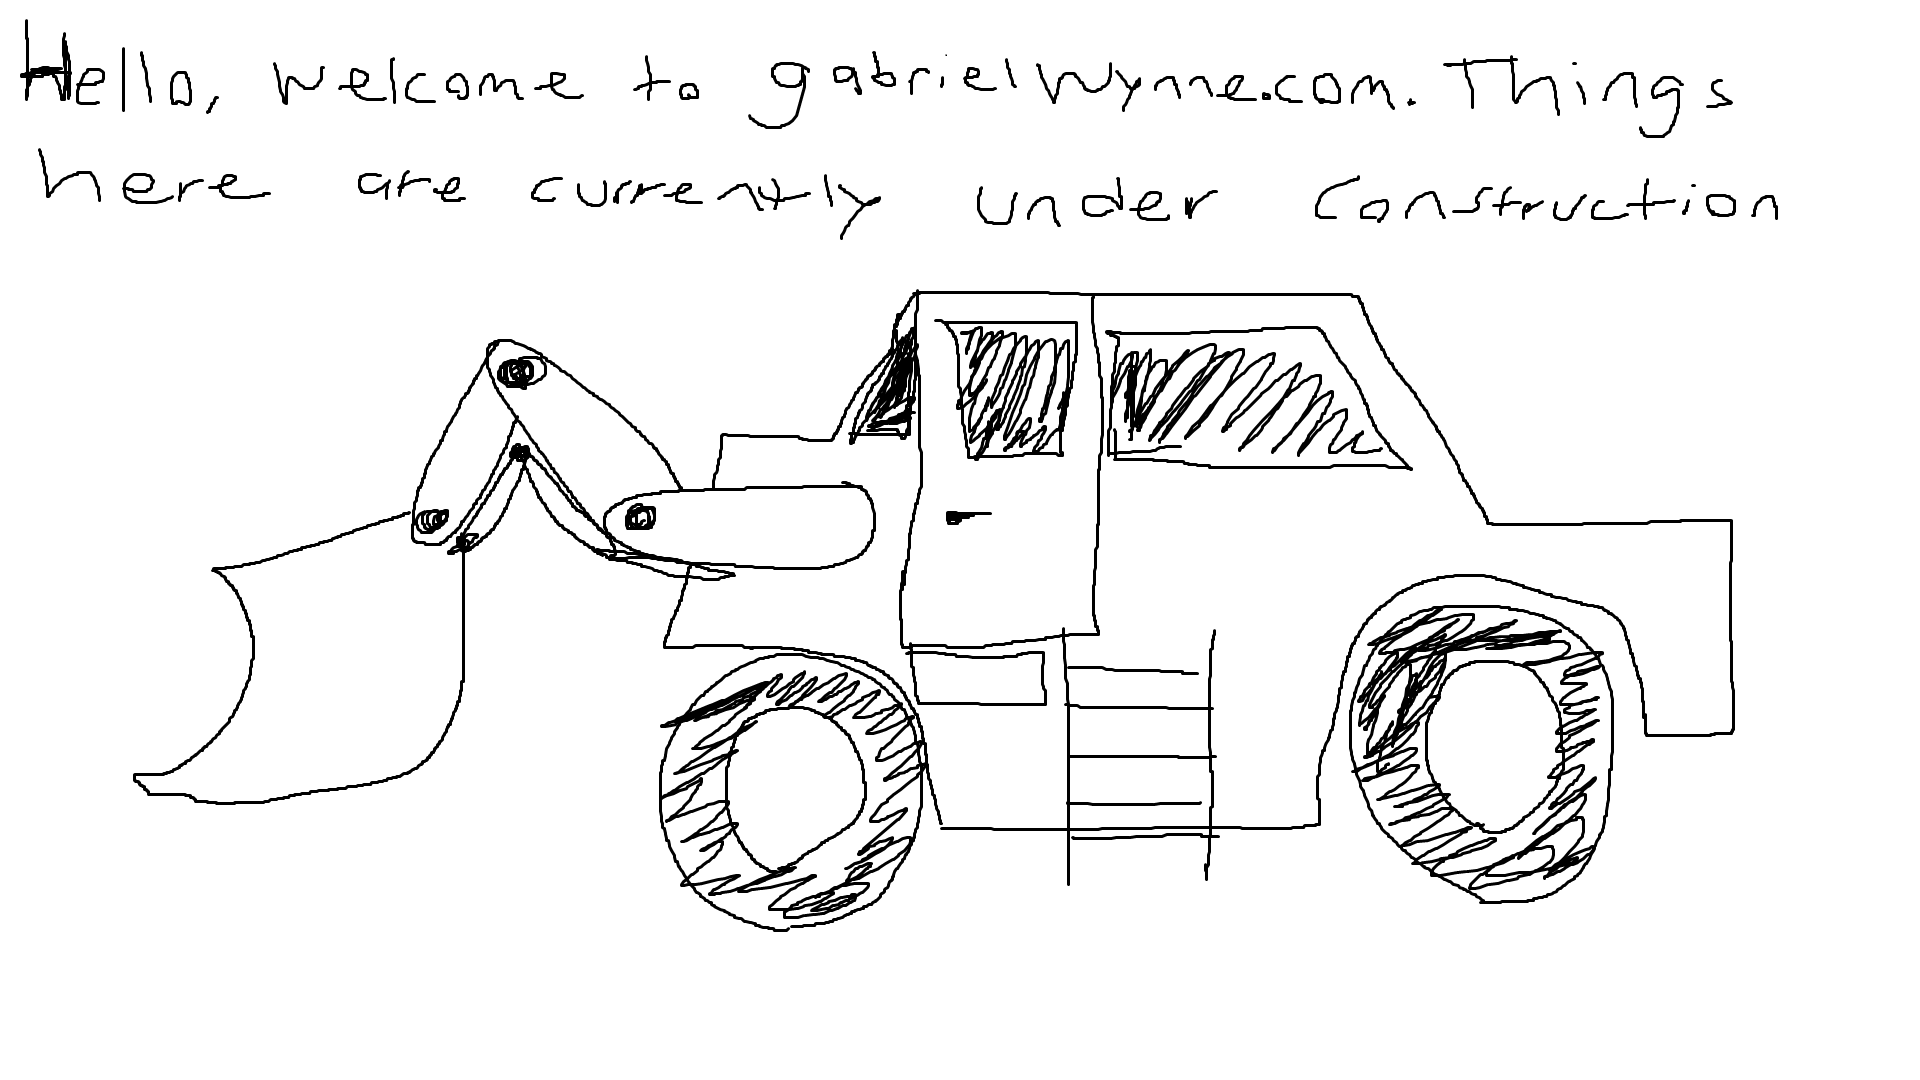 Hello, welcome to gabrielwynne.com. Things
here are currently under construction